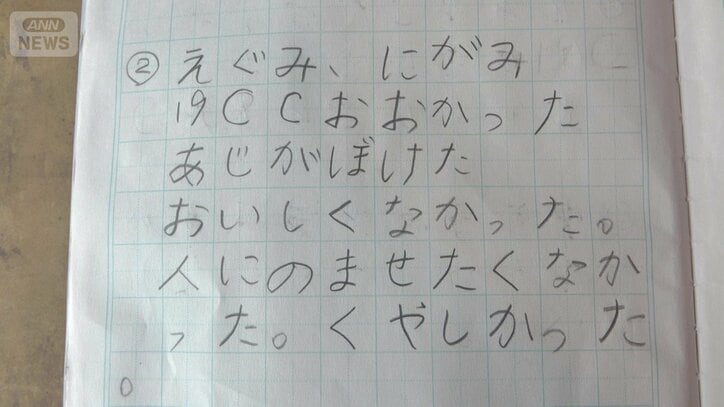 ANN
NEWS
② えぐみ、にがみ
19CCおおかった
あじがぼけた
おいしくなかった。
人にのませたくなか
った。くやしかった
。